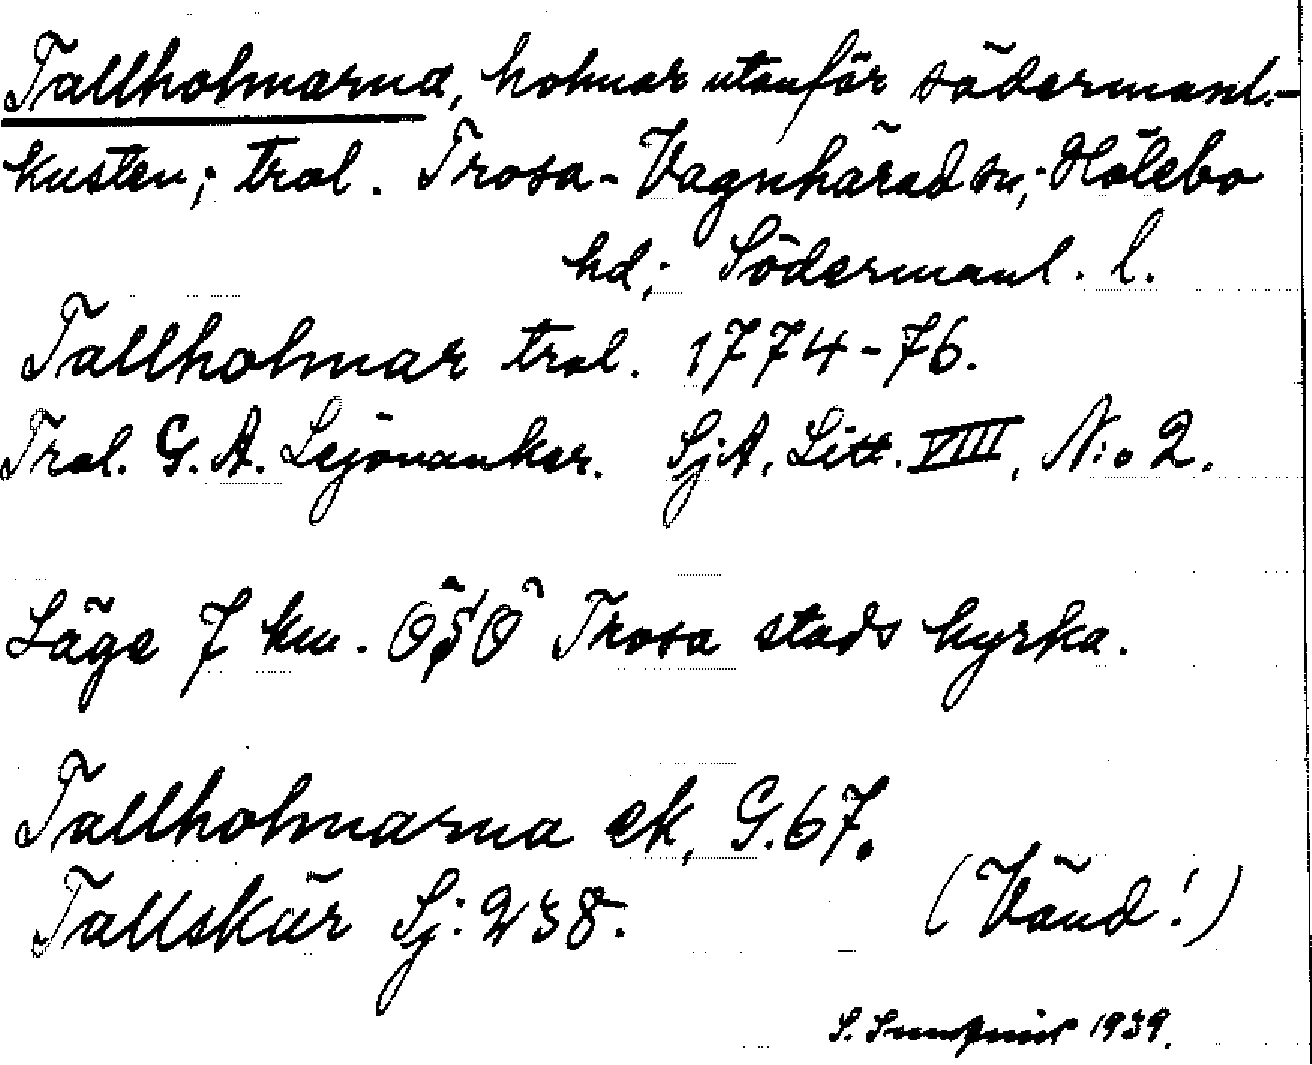 Tallholmarna, holmar utanför södermanl.-
kusten; trol. Trosa-Vagnhärad sn; Hölebo
hd; Södermanl. l.
Tallholmar trol. 1774-76.
Trol. G. A. Lejonanker. SjA, Litt. VIII, N:o 2.
Läge 7 km. OSO Trosa stads kyrka.
Tallholmarna ek, G. 67.
Tallskär Sj: 238.
(Vänd!)
S. 1939.